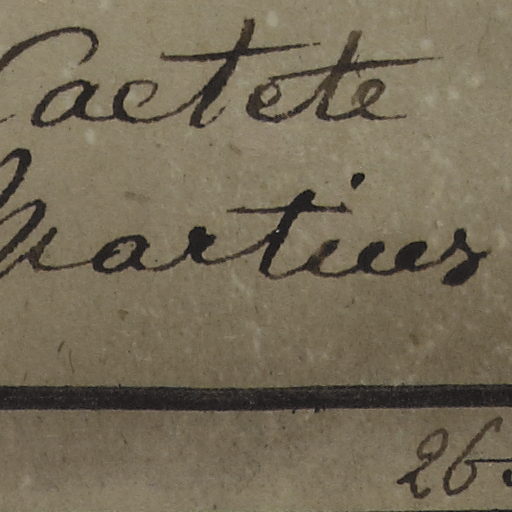 Caetete
Martius
26